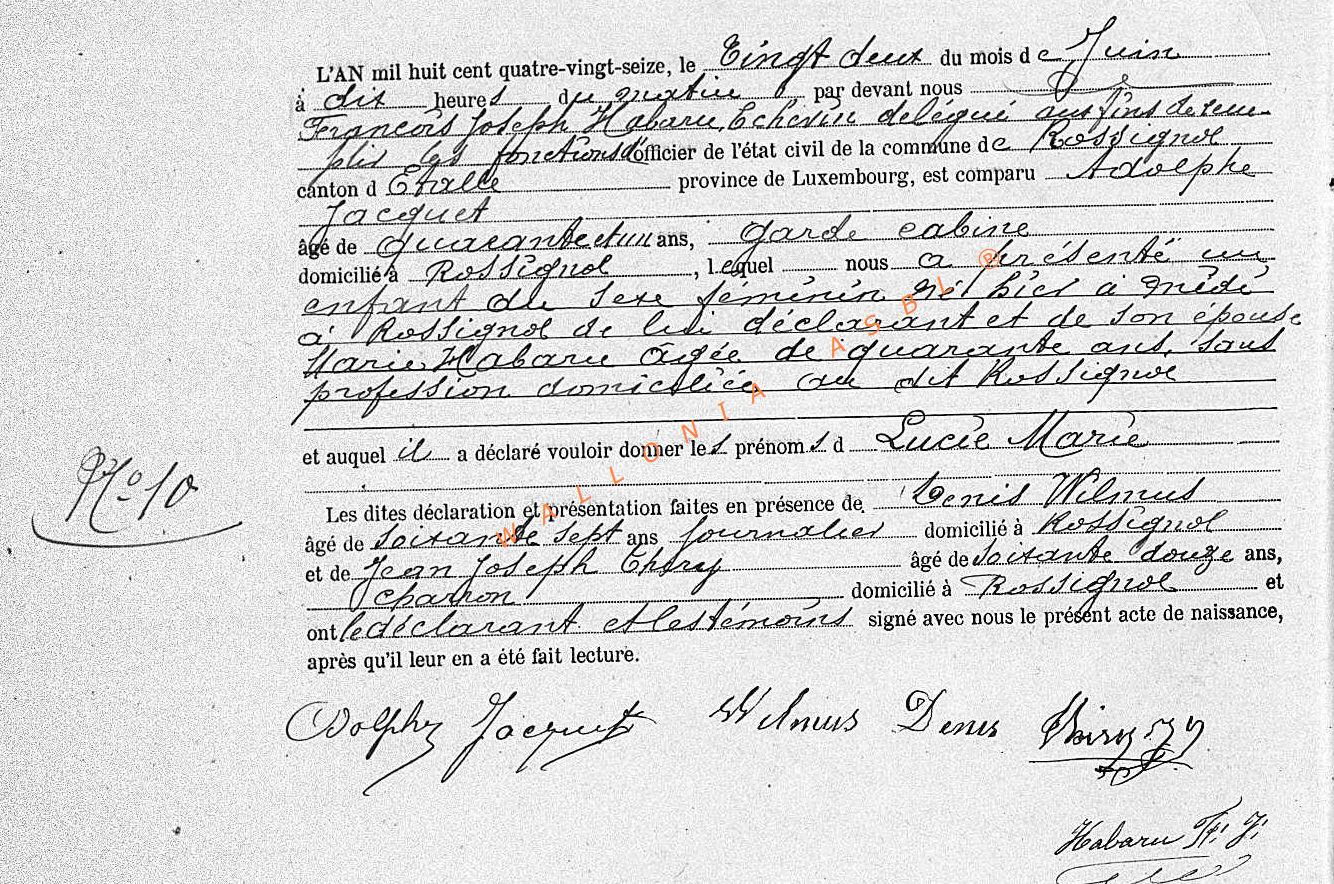 L'AN mil huit cent quatre-vingt-seize, le Vingt deux du mois de Juin
à dix heures du matin par devant nous
François Joseph Habaru, Echevin délégué aux fins de rem-
plir les fonctions d'officier de l'état civil de la commune de Rossignol
canton d Etalle province de Luxembourg, est comparu Adolphe
Jacquet
âgé de quarante et un ans, garde cabine
domicilié à Rossignol, lequel nous a présenté un
enfant du sexe féminin né hier à midi
à Rossignol de lui déclarant et de son épouse
Marie Habaru âgée de quarante ans, sans
profession domiciliée au dit Rossignol
et auquel il a déclaré vouloir donner les prénoms d Lucie Marie
N° 10
Les dites déclaration et présentation faites en présence de Denis Wilmus
âgé de soixante sept ans journalier domicilié à Rossignol
et de Jean Joseph Thiry âgé de soixante douze ans,
charron domicilié à Rossignol et
ont le déclarant et les témoins signé avec nous le présent acte de naissance,
après qu'il leur en a été fait lecture.
Adolphe Jacquet Wilmus Denis Thiry JJ
Habaru F. J.
WALLONIA ASBL ®